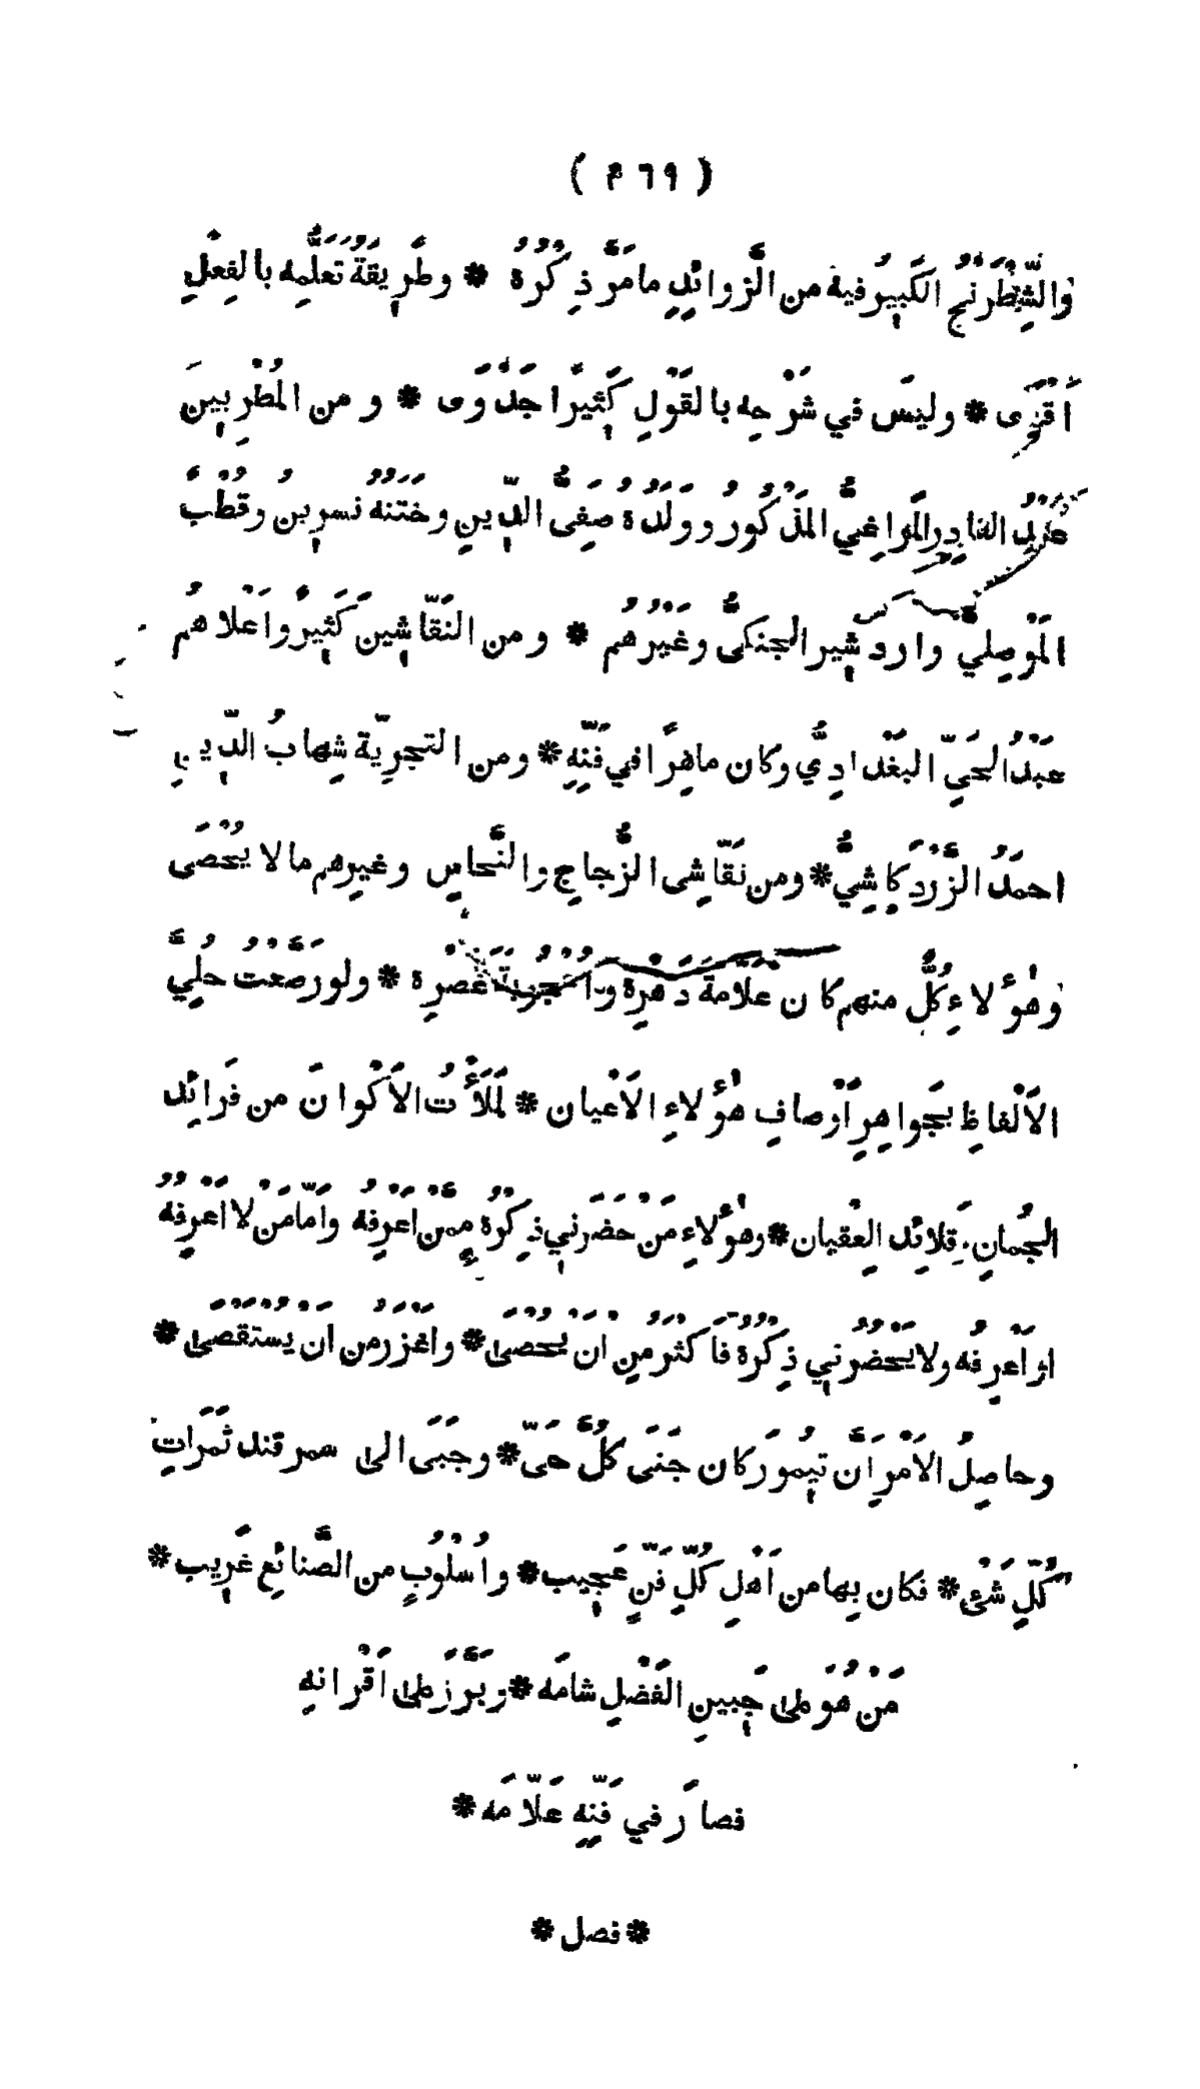 ( ٤٦٩ )
والشِّطْرَنْجُ الكَبِيرُ فيهِ من الزَّوائِدِ مامَرَّ ذِكْرُهُ * وطَرِيقَةُ تَعَلُّمِهِ بالفِعْلِ
اَقْوَى * وليْسَ في شَرْحِهِ بالقَوْلِ كَثِيرُ اجَدْوَى * ومن المُطْرِبِينَ
عَبْدُ القادِرِ المَراغِيُّ المَذْكُورُ ووَلَدُهُ صَفِيُّ الدِّينِ وخَتَنُهُ نسرِينُ وقُطْبُ
المَوْصِلِيُّ وارد شِير الجنكيُّ وغَيْرُهُمْ * ومن النَقّاشِينَ كَثِيرٌ واَعْلاهُمْ
عَبْدُ الحَيِّ البَغْدادِيُّ وكان ماهِرًا في فَنِّهِ * ومن التجرِيّة شِهابُ الدِّينِ
احمَدُ الزَّرْدَكاشِيُّ * ومن نَقّاشِى الزُّجاجِ والنُّحاسِ وغيرِهم مالا يُحْصَى
وهٰؤُلاءِ كُلٌّ منهم كان عَلّامَةَ دَهْرِهِ واُعْجُوبَةَ عَصْرِهِ * ولو رَصَّعْتُ حُلِيَّ
الاَلْفاظِ بجَواهِرِ اَوْصافِ هٰؤُلاءِ الاَعْيان * لَمَلَأْتُ الاَكْوانَ من فَرائِد
الجُمانِ وقَلائِد العِقْيان * وهٰؤُلاءِ مَنْ حَضَرَنِي ذِكْرُهُ مِمَّنْ اَعْرِفُهُ واَمّا مَنْ لا اَعْرِفُهُ
او اَعرِفُه ولا يَحْضُرُنِي ذِكْرُهُ فَاَكثَرُ مِن اَنْ يُحْصَى * واَغْزَرُ من اَنْ يُسْتَقْصَى *
وحاصِلُ الاَمْرِ اَنَّ تِيمُورَ كان جَنَى كُلَّ حَىّ * وجَبَى الى سمرقند ثَمَراتِ
كُلِّ شَىْءٍ * فكان بِها من اَهْلِ كُلِّ فَنٍّ عَجِيب * واُسْلُوبٍ من الصَّنائِعِ غَرِيب *
مَنْ هُوَ على جَبِينِ الفَضْلِ شامَه * وبَرَّزَ على اَقْرانِهِ
فصارَ في فَنِّهِ عَلّامَه *
* فصل *